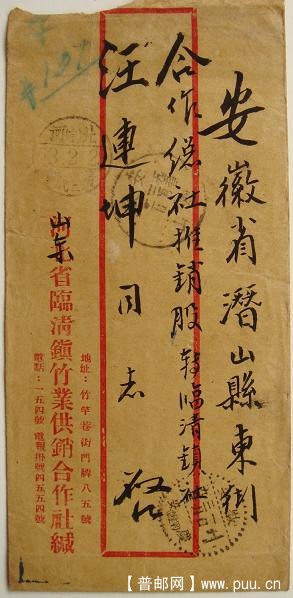 安徽省潛山縣東街
合作總社推銷股轉臨清鎮社
汪連坤同志 啓
地址:竹竿巷街門牌八五號
山东省臨清鎮竹業供銷合作社緘
電話:一五四號 電報掛號四五五四號
【普邮网】www.puu.cn